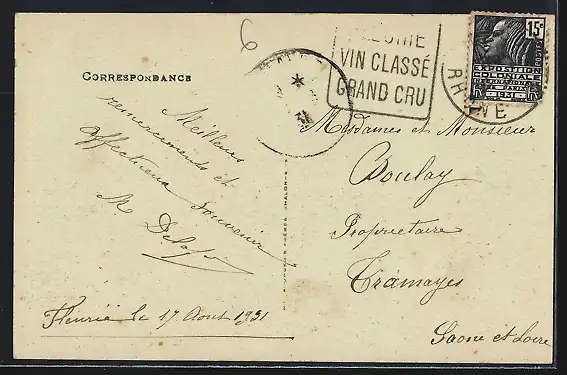 6
FLEURIE
VIN CLASSÉ
GRAND CRU
RHÔNE
15c
POSTES
EXPOSITION
COLONIALE
INTERNATIONALE
PARIS
1931
CORRESPONDANCE
Meilleurs
remerciements et
affectueux souvenir
M Delafo
Fleurie le 17 Aout 1931
Mesdames et Monsieur
Boulay
Propriétaire
Tramayes
Saone et Loire